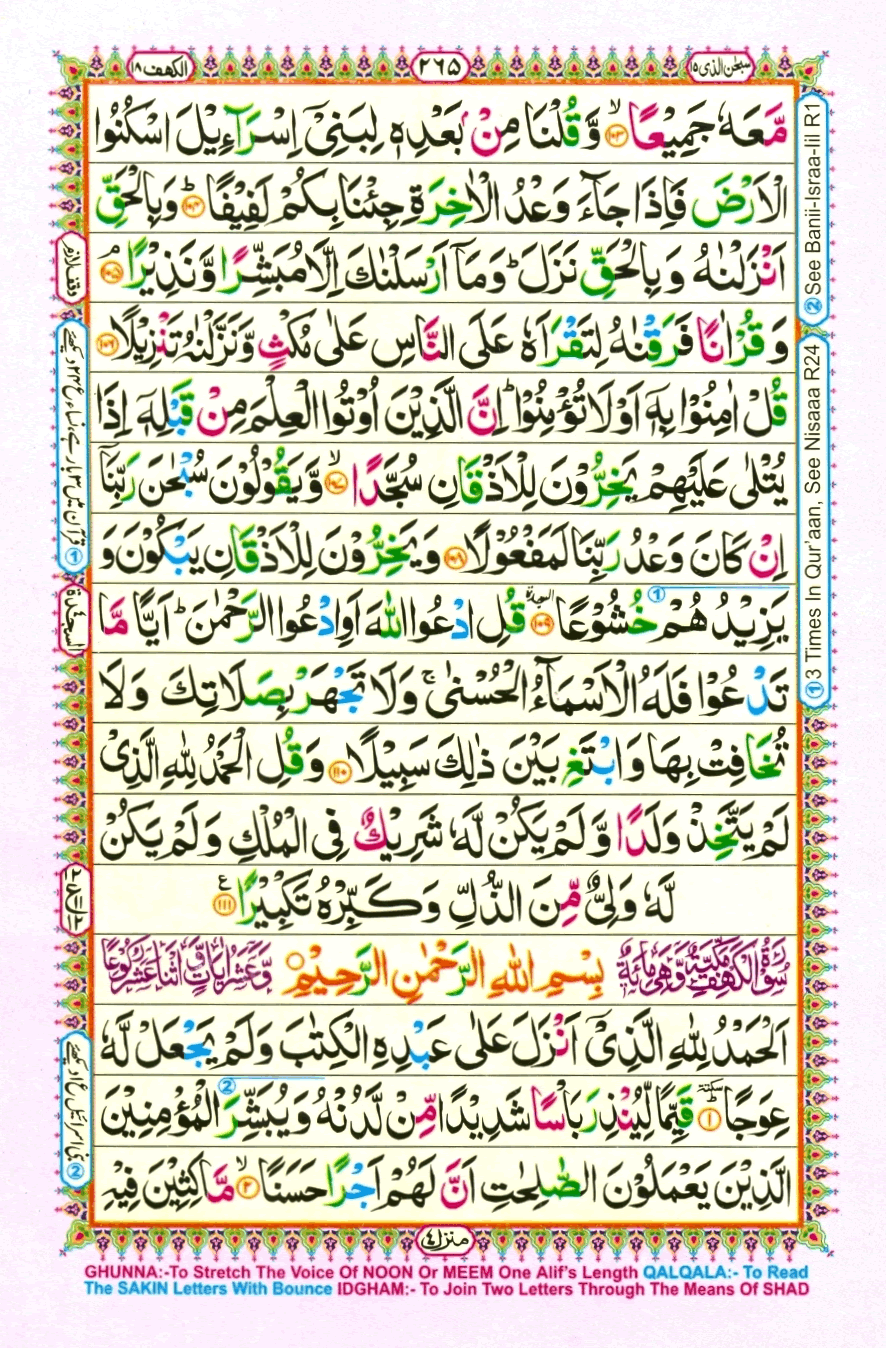 سبحٰن الذی ۱۵
۲۶۵
الكهف ۱۸
مَّعَهٗ جَمِيْعًا ۙ﴿۱۰۳﴾ وَّ قُلْنَا مِنْۢ بَعْدِهٖ لِبَنِيْٓ اِسْرَآءِيْلَ اسْكُنُوا
الْاَرْضَ فَاِذَا جَآءَ وَعْدُ الْاٰخِرَةِ جِئْنَا بِكُمْ لَفِيْفًا ؕ﴿۱۰۴﴾ وَ بِالْحَقِّ
اَنْزَلْنٰهُ وَ بِالْحَقِّ نَزَلَ ؕ وَ مَاۤ اَرْسَلْنٰكَ اِلَّا مُبَشِّرًا وَّ نَذِيْرًا ۘ﴿۱۰۵﴾
وَ قُرْاٰنًا فَرَقْنٰهُ لِتَقْرَاَهٗ عَلَى النَّاسِ عَلٰى مُكْثٍ وَّ نَزَّلْنٰهُ تَنْزِيْلًا ﴿۱۰۶﴾
قُلْ اٰمِنُوْا بِهٖۤ اَوْ لَا تُؤْمِنُوْا ؕ اِنَّ الَّذِيْنَ اُوْتُوا الْعِلْمَ مِنْ قَبْلِهٖۤ اِذَا
يُتْلٰى عَلَيْهِمْ يَخِرُّوْنَ لِلْاَذْقَانِ سُجَّدًا ۙ﴿۱۰۷﴾ وَّ يَقُوْلُوْنَ سُبْحٰنَ رَبِّنَاۤ
اِنْ كَانَ وَعْدُ رَبِّنَا لَمَفْعُوْلًا ﴿۱۰۸﴾ وَ يَخِرُّوْنَ لِلْاَذْقَانِ يَبْكُوْنَ وَ
يَزِيْدُهُمْ خُشُوْعًا ①﴿۱۰۹﴾ السجدة قُلِ ادْعُوا اللّٰهَ اَوِ ادْعُوا الرَّحْمٰنَ ؕ اَيًّا مَّا
تَدْعُوْا فَلَهُ الْاَسْمَآءُ الْحُسْنٰى ۚ وَ لَا تَجْهَرْ بِصَلَاتِكَ وَ لَا
تُخَافِتْ بِهَا وَ ابْتَغِ بَيْنَ ذٰلِكَ سَبِيْلًا ﴿۱۱۰﴾ وَ قُلِ الْحَمْدُ لِلّٰهِ الَّذِيْ
لَمْ يَتَّخِذْ وَلَدًا وَّ لَمْ يَكُنْ لَّهٗ شَرِيْكٌ فِي الْمُلْكِ وَ لَمْ يَكُنْ
لَّهٗ وَلِيٌّ مِّنَ الذُّلِّ وَ كَبِّرْهُ تَكْبِيْرًا ﴿۱۱۱﴾ ع
سُوْرَةُ الْكَهْفِ مَكِّيَّةٌ وَّهِيَ مِائَةٌ بِسْمِ اللّٰهِ الرَّحْمٰنِ الرَّحِيْمِ وَّعَشْرُ اٰيَاتٍ وَّاثْنَا عَشَرَ رُكُوْعًا
اَلْحَمْدُ لِلّٰهِ الَّذِيْۤ اَنْزَلَ عَلٰى عَبْدِهِ الْكِتٰبَ وَ لَمْ يَجْعَلْ لَّهٗ
عِوَجًا ؕ﴿۱﴾ سكتة قَيِّمًا لِّيُنْذِرَ بَاْسًا شَدِيْدًا مِّنْ لَّدُنْهُ ② وَ يُبَشِّرَ الْمُؤْمِنِيْنَ
الَّذِيْنَ يَعْمَلُوْنَ الصّٰلِحٰتِ اَنَّ لَهُمْ اَجْرًا حَسَنًا ۙ﴿۲﴾ مَّاكِثِيْنَ فِيْهِ
② See Banii-Israa-Iil R1
① 3 Times In Qur'aan, See Nisaaa R24
وقف لازم
السجدة ٤
منزل ٤
GHUNNA:-To Stretch The Voice Of NOON Or MEEM One Alif's Length QALQALA:- To Read
The SAKIN Letters With Bounce IDGHAM:- To Join Two Letters Through The Means Of SHAD